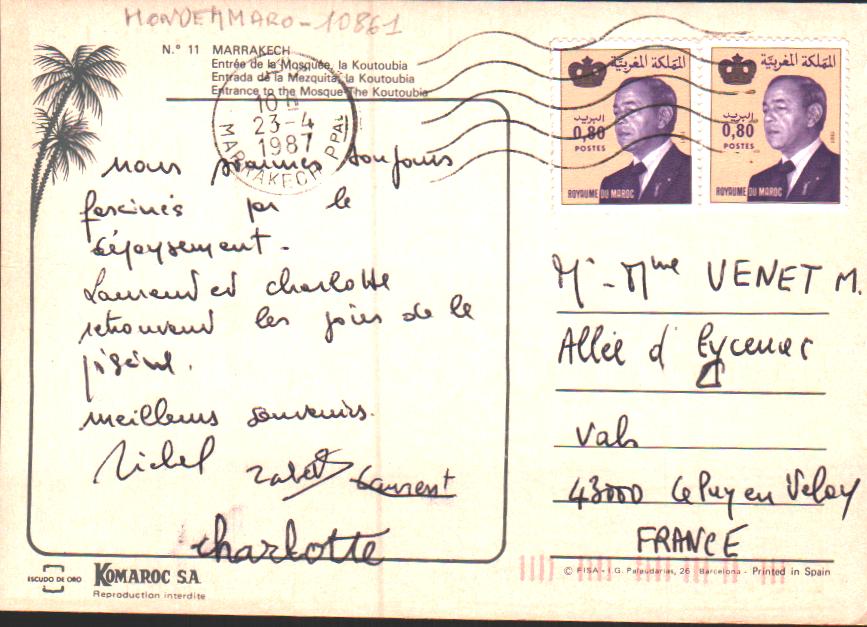 MONDEMMARO - 10861
N.° 11 MARRAKECH
Entrée de la Mosquée, la Koutoubia
Entrada de la Mezquita, la Koutoubia
Entrance to the Mosque The Koutoubia
10 H
23-4
1987
MARRAKECH PPAL
nous sommes toujours
fascinés par le
dépaysement.
Laurent et charlotte
retrouvent les joies de la
piscine.
meilleurs souvenirs.
Michel Laurent
charlotte
المملكة المغربية
البريد
0,80
POSTES
ROYAUME DU MAROC
المملكة المغربية
البريد
0,80
POSTES
ROYAUME DU MAROC
Mr - Mme VENET M.
Allée d' Eycenac
Vals
43000 Le Puy en Velay
FRANCE
ESCUDO DE ORO
KOMAROC S.A.
Reproduction interdite
© FISA - I.G. Palaudarias, 26 - Barcelona - Printed in Spain